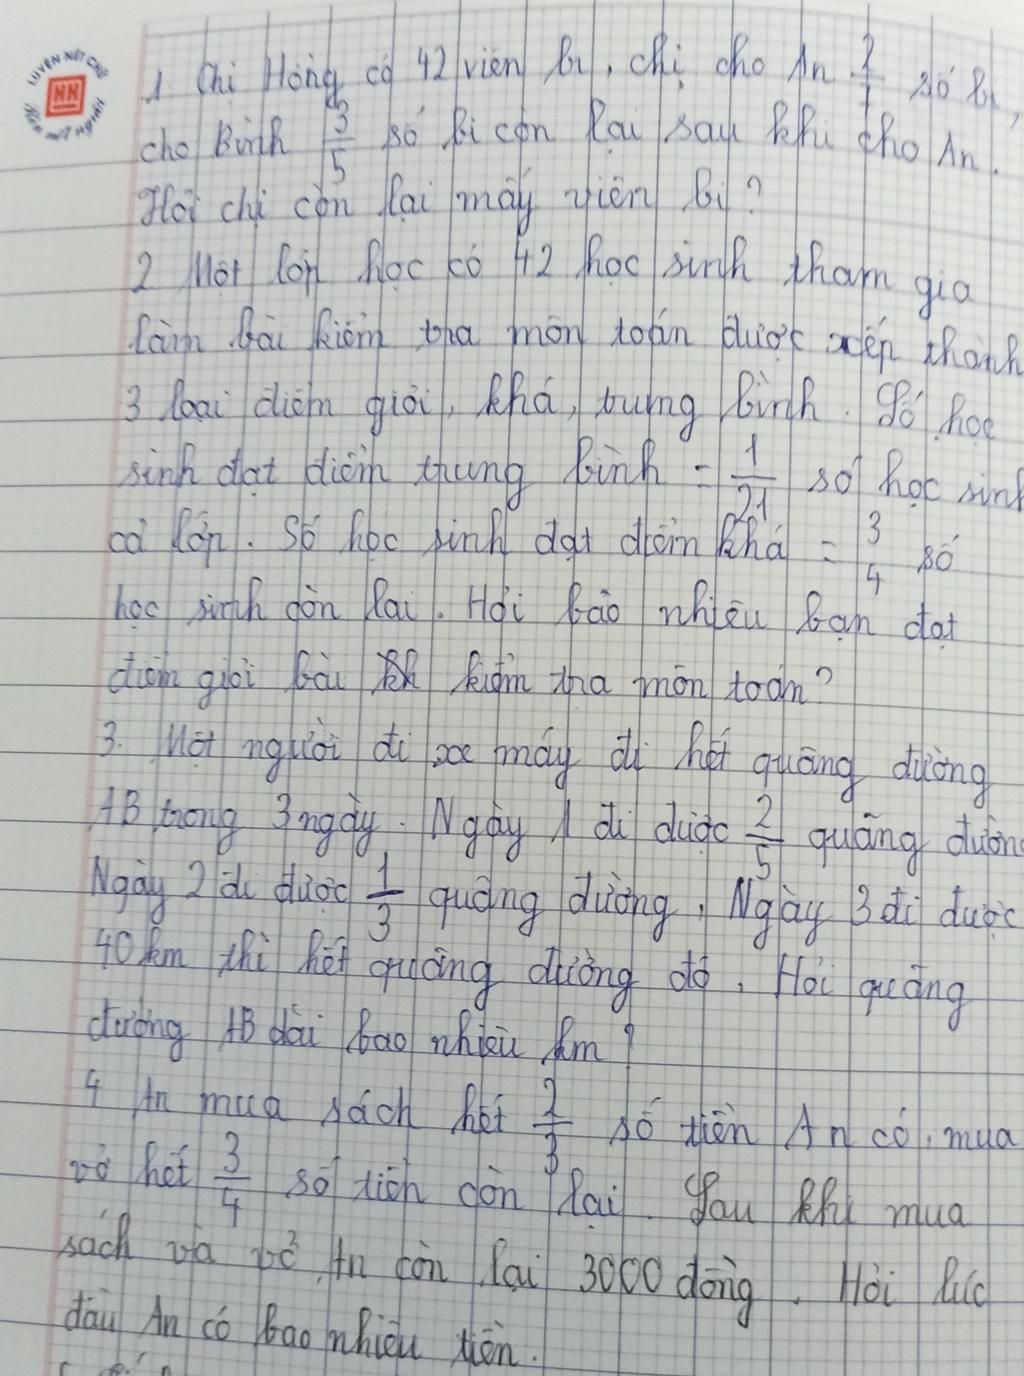 LUYỆN NÉT CHỮ
HN
1. Chị Hồng có 42 viên bi, chị cho An 2/7 số bi,
cho Bình 3/5 số bi còn lại sau khi cho An.
Hỏi chị còn lại mấy viên bi?
2 Một lớp học có 42 học sinh tham gia
làm bài kiểm tra môn toán được xếp thành
3 loại điểm giỏi, khá, trung bình. Số học
sinh đạt điểm trung bình = 1/21 số học sinh
cả lớp. Số học sinh đạt điểm khá = 3/4 số
học sinh còn lại. Hỏi bao nhiêu bạn đạt
điểm giỏi bài kiểm tra môn toán?
3. Một người đi xe máy đi hết quãng đường
AB trong 3 ngày. Ngày 1 đi được 2/5 quãng đường
Ngày 2 đi được 1/3 quãng đường, Ngày 3 đi được
40 km thì hết quãng đường đó. Hỏi quãng
đường AB dài bao nhiêu km?
4 An mua sách hết 2/3 số tiền An có, mua
vở hết 3/4 số tiền còn lại. Sau khi mua
sách và vở An còn lại 3000 đồng. Hỏi lúc
đầu An có bao nhiêu tiền.